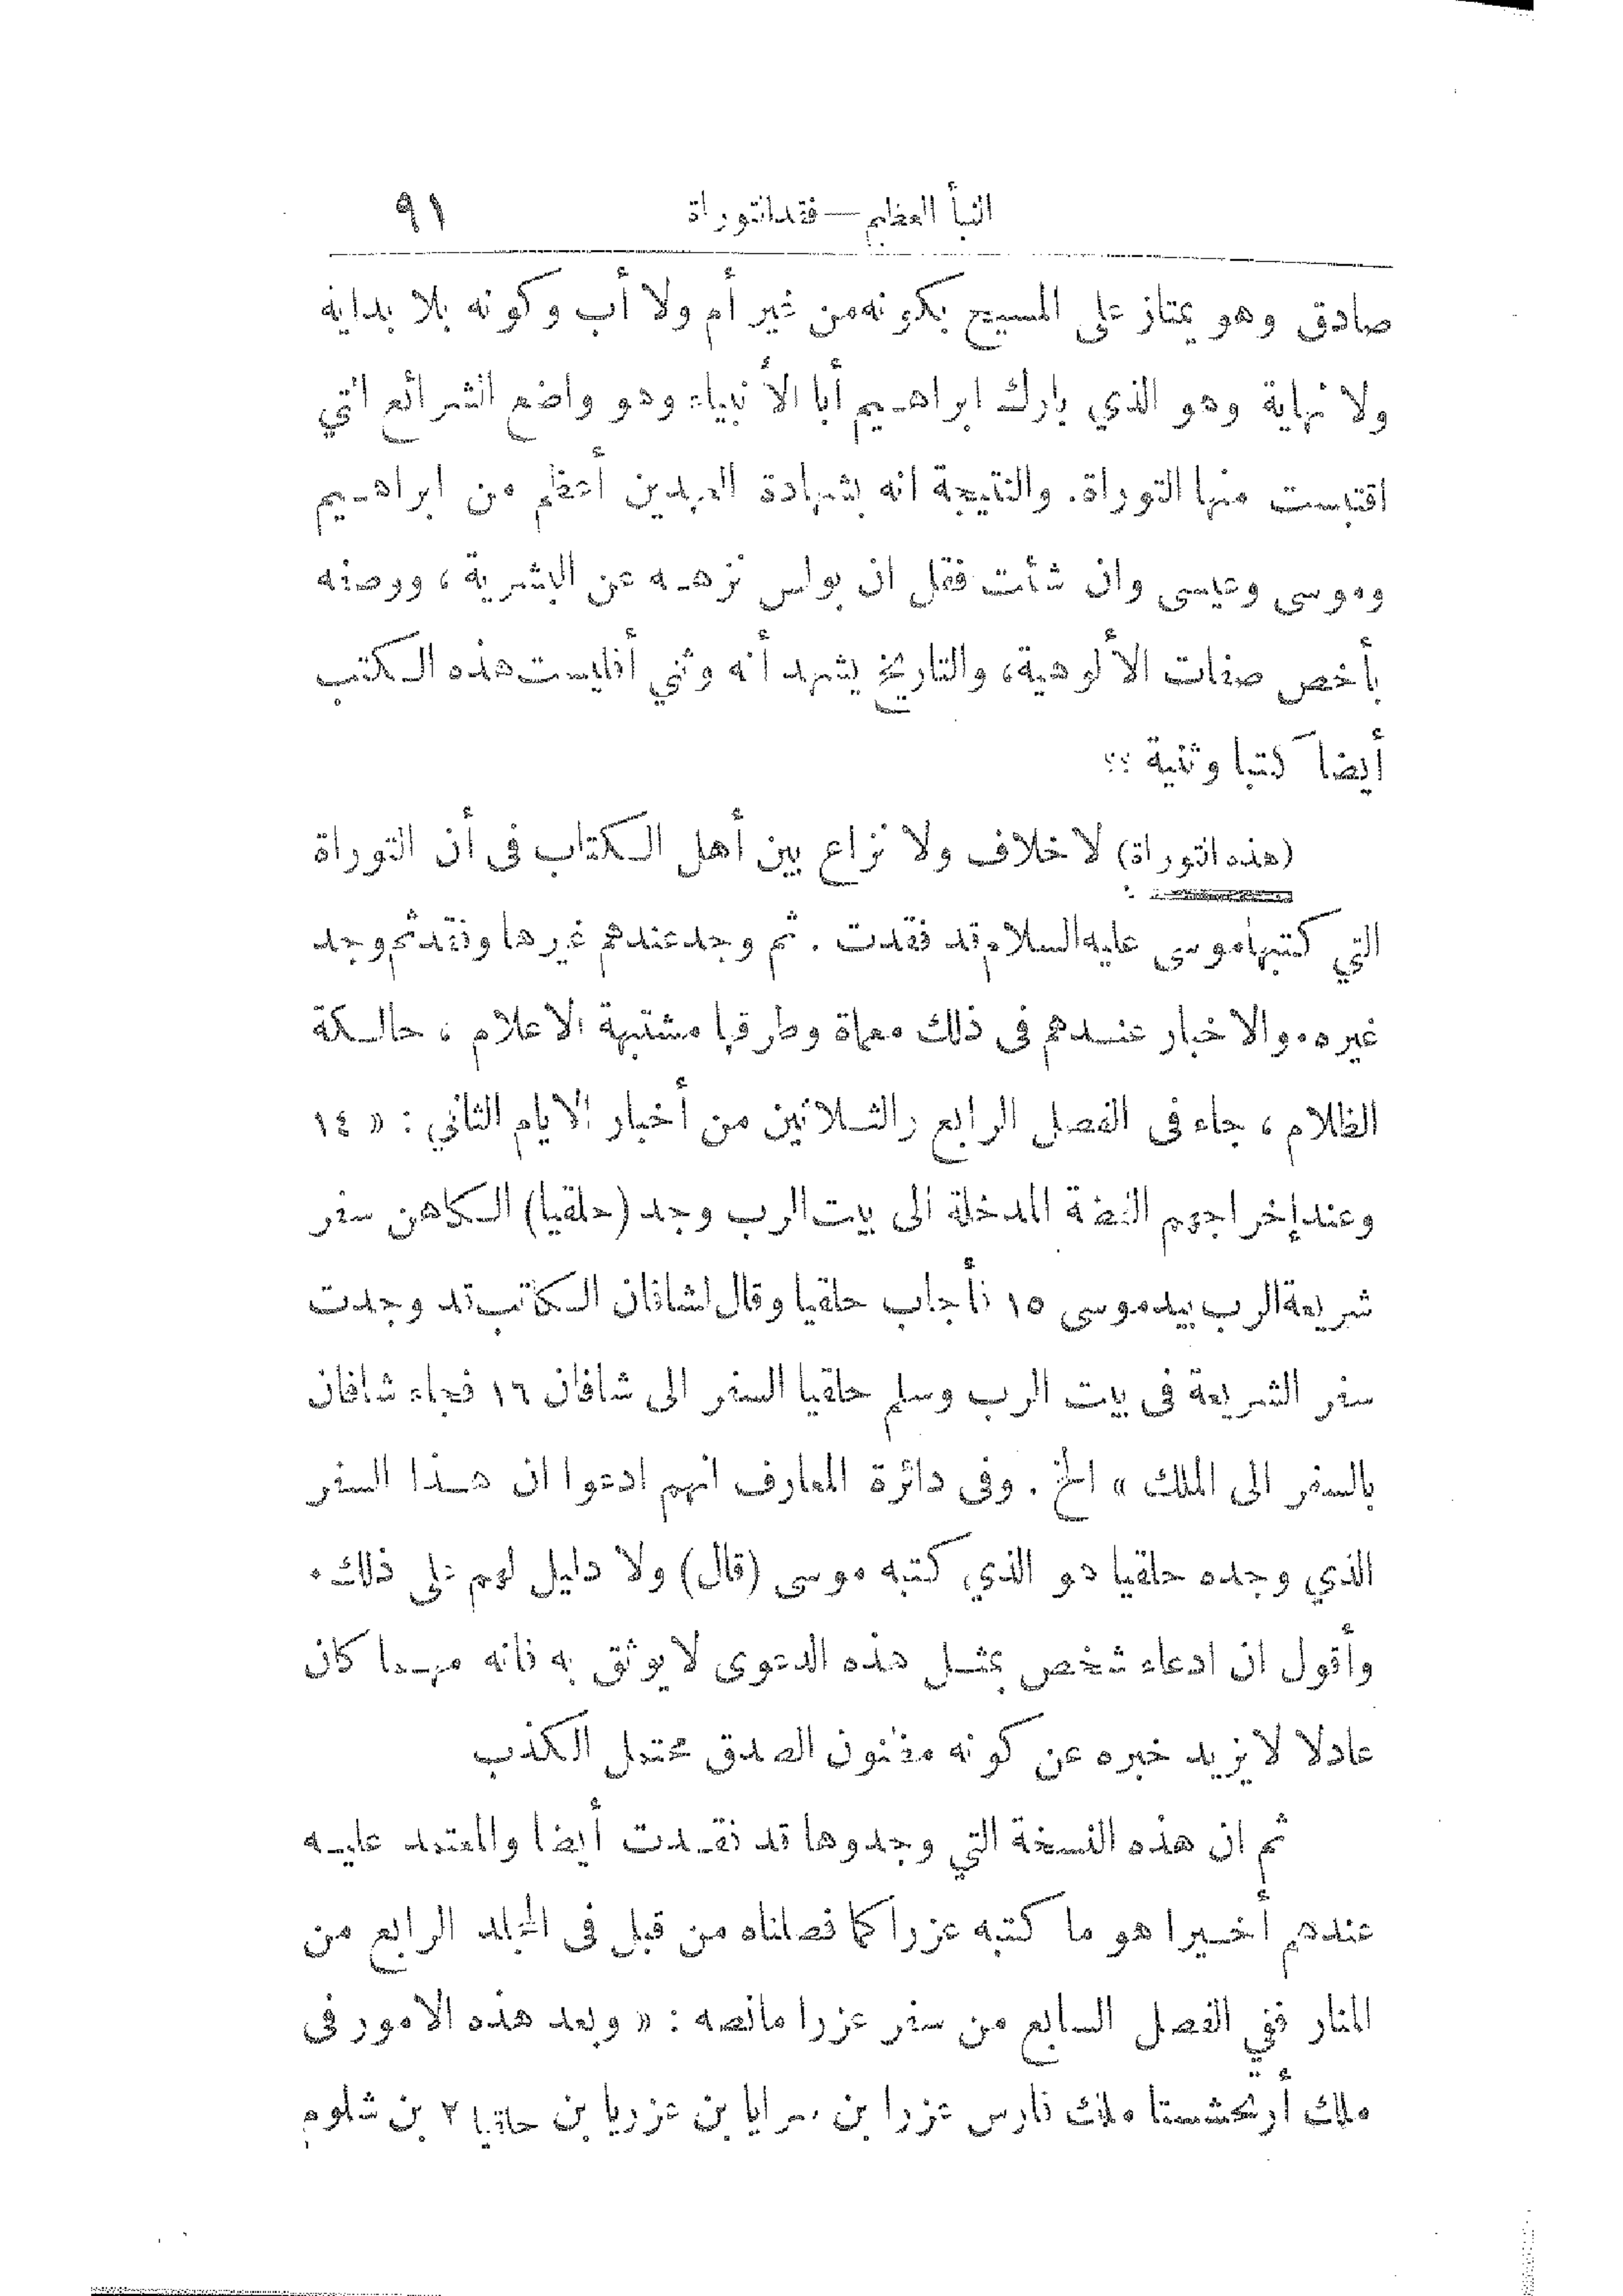 النبأ العظيم — فقد التوراة ٩١
صادق وهو يمتاز على المسيح بكونه من غير أم ولا أب وكونه بلا بداية
ولا نهاية وهو الذي بارك ابراهيم أبا الأنبياء وهو واضع الشرائع التي
اقتبست منها التوراة. والنتيجة انه بشهادة العهدين أعظم من ابراهيم
وموسى وعيسى وان شئت فقل ان بولس نزهه عن البشرية، ووصفه
بأخص صفات الألوهية، والتاريخ يشهد أنه وثني أفليست هذه الكتب
أيضا كتبا وثنية ؟؟
(هذه التوراة) لا خلاف ولا نزاع بين أهل الكتاب فى أن التوراة
التي كتبها موسى عليه السلام قد فقدت . ثم وجد عندهم غيرها وفقد ثم وجد
غيره. والاخبار عندهم فى ذلك معماة وطرقها مشتبهة الاعلام ، حالكة
الظلام ، جاء فى الفصل الرابع والثلاثين من أخبار الايام الثاني : « ١٤
وعند إخراجهم الفضة المدخلة الى بيت الرب وجد (حلقيا) الكاهن سفر
شريعة الرب بيد موسى ١٥ فأجاب حلقيا وقال لشافان الكاتب قد وجدت
سفر الشريعة فى بيت الرب وسلم حلقيا السفر الى شافان ١٦ فجاء شافان
بالسفر الى الملك » الخ . وفى دائرة المعارف انهم ادعوا ان هذا السفر
الذي وجده حلقيا هو الذي كتبه موسى (قال) ولا دليل لهم على ذلك.
وأقول ان ادعاء شخص بمثل هذه الدعوى لا يوثق به فانه مهما كان
عادلا لا يزيد خبره عن كونه مظنون الصدق محتمل الكذب
ثم ان هذه النسخة التي وجدوها قد فقدت أيضا والمعتمد عليه
عندهم أخيرا هو ما كتبه عزرا كما فصلناه من قبل فى المجلد الرابع من
المنار ففي الفصل السابع من سفر عزرا مانصه : « وبعد هذه الامور فى
ملك أرتحششتا ملك فارس عزرا بن سرايا بن عزريا بن حلقيا ٢ بن شلوم